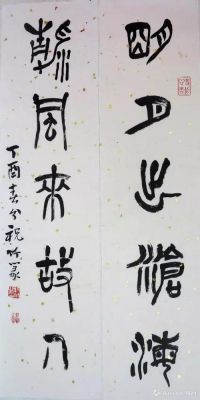 明月出滄海
清風來故人
丁酉春分祝竹篆